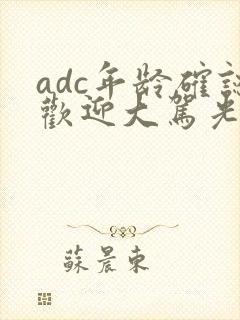 adc年龄確認
歡迎大駕光
蘇晨東